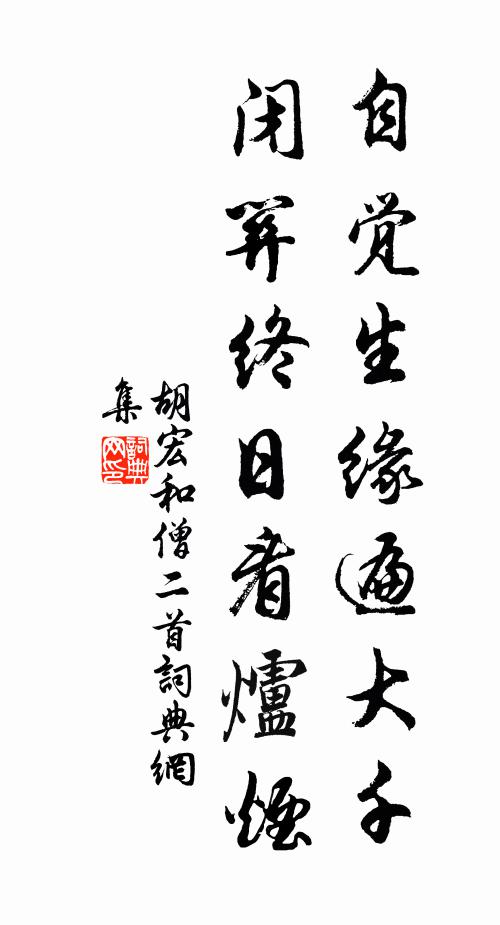 自觉生缘遍大千
闭關终日看爐煙
胡宏和僧二首詞典網
集
詞典网印